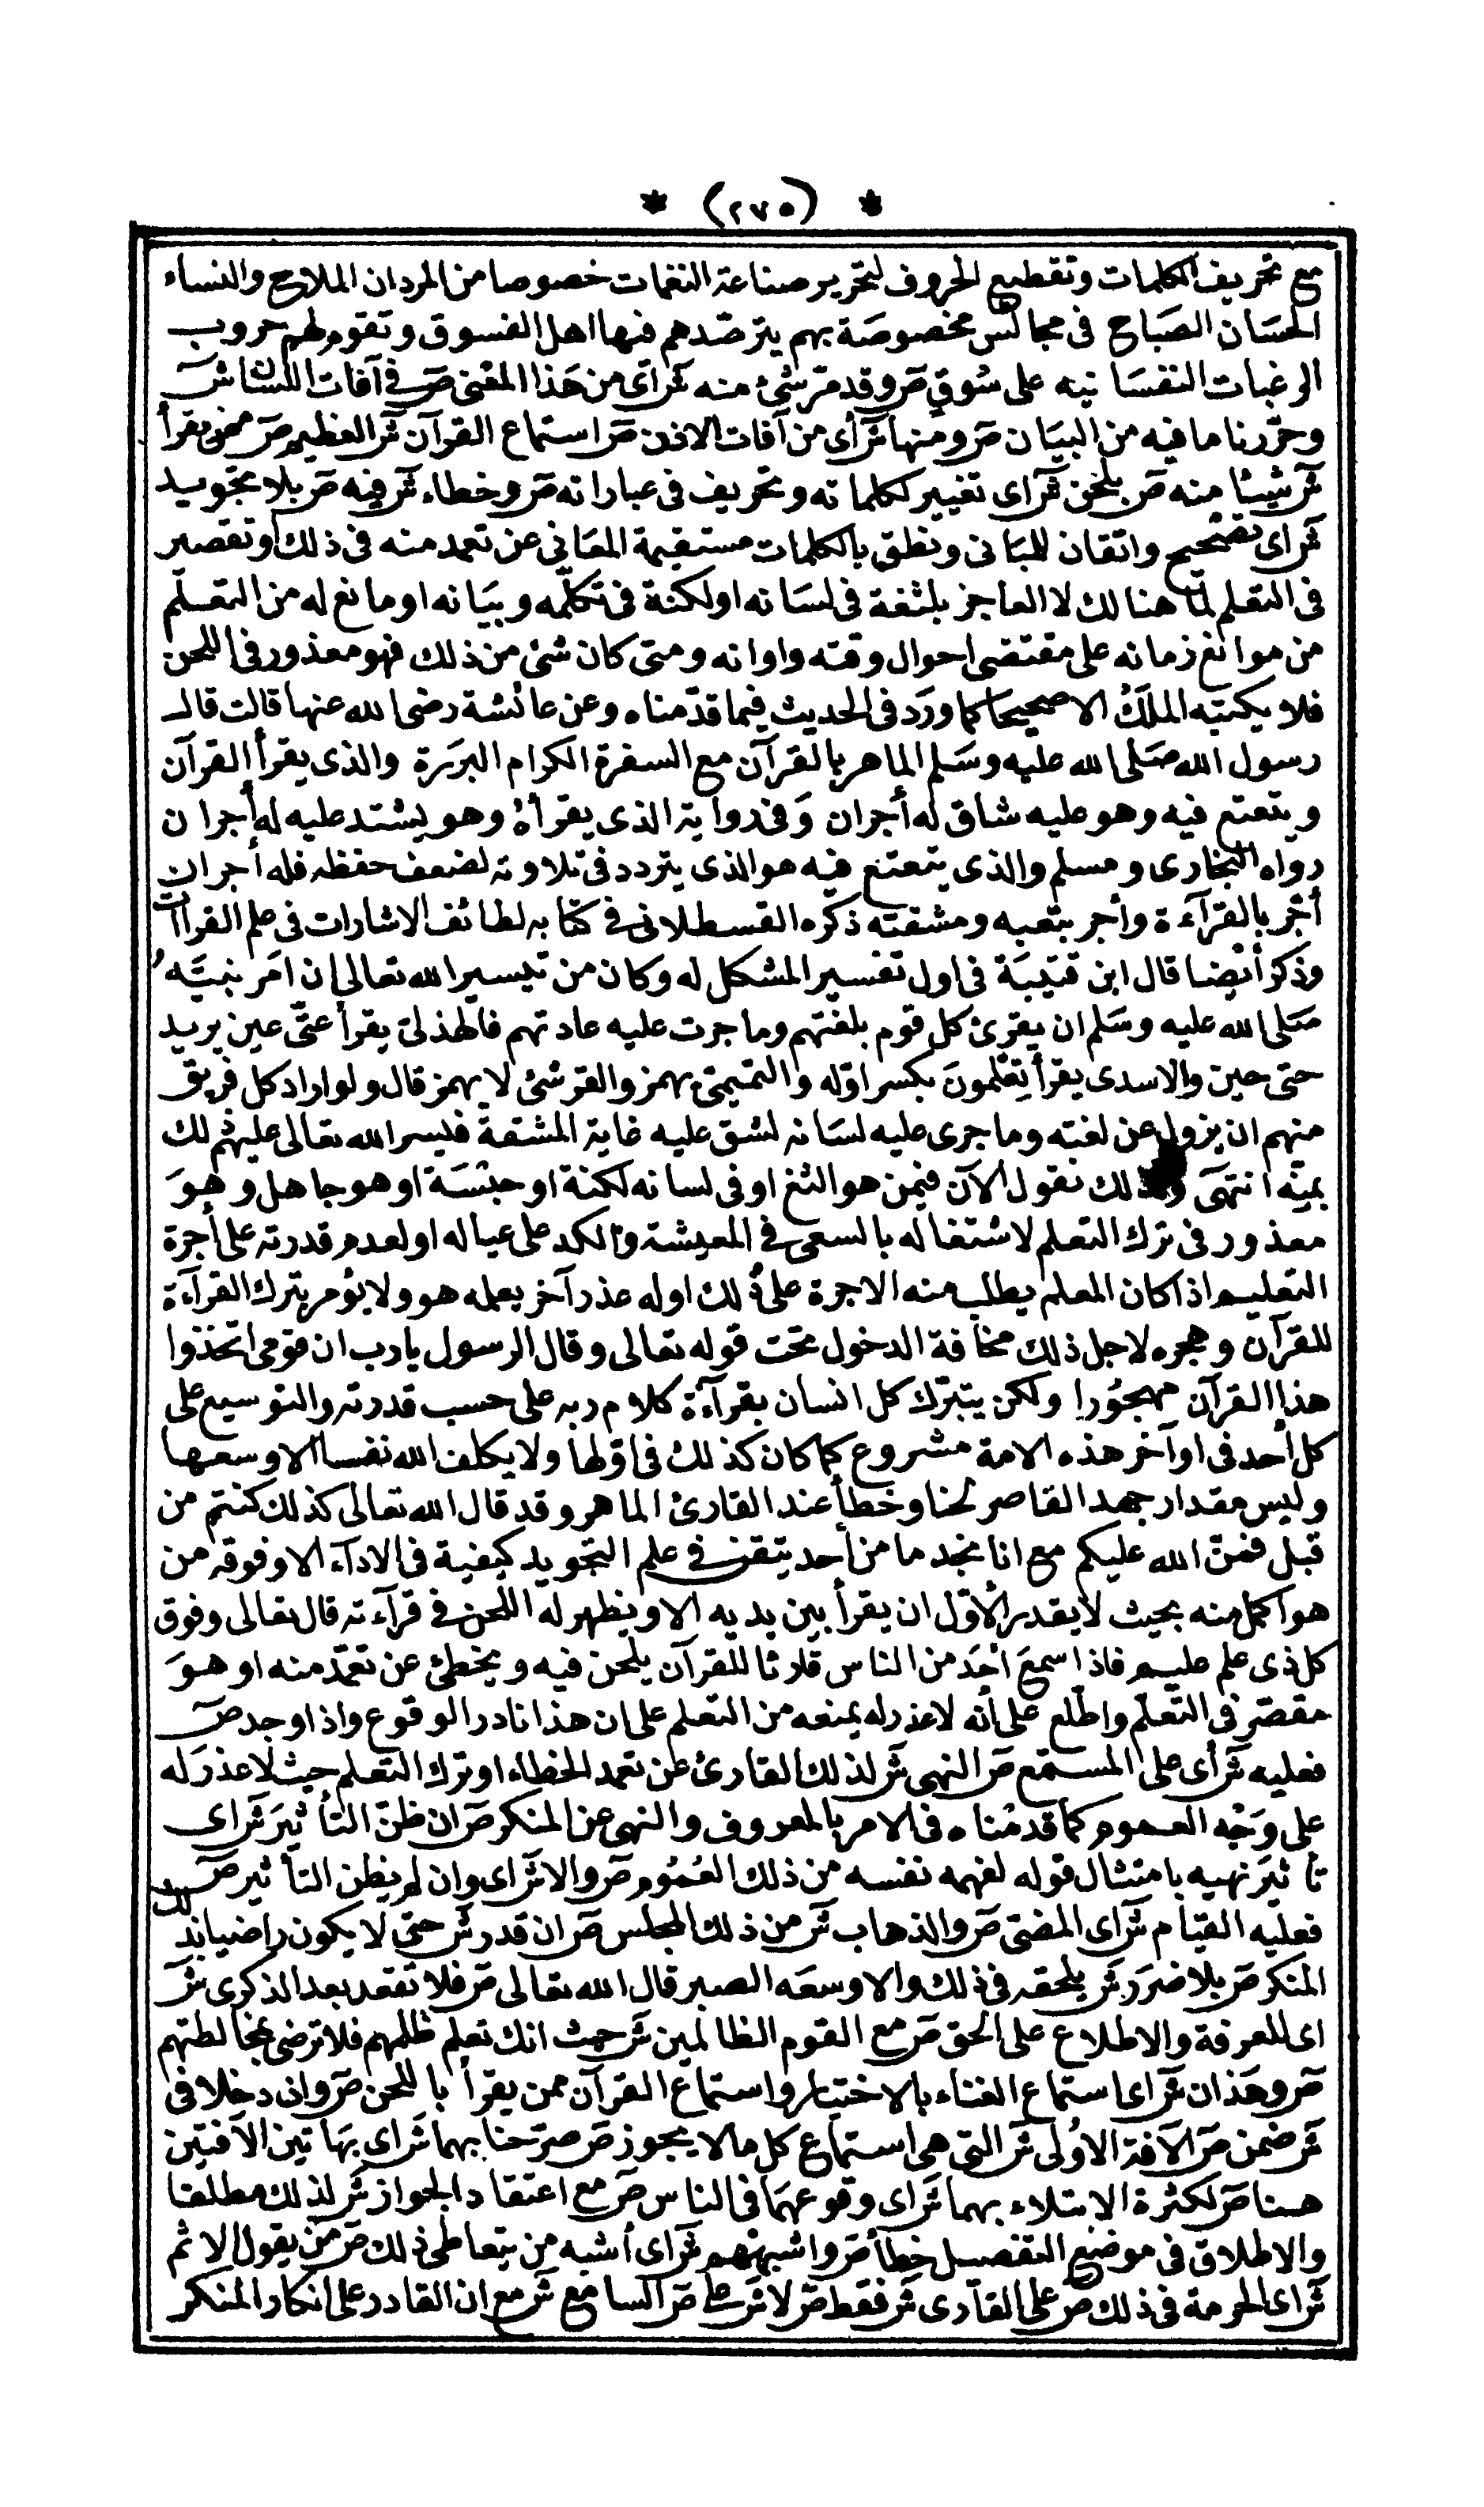 * (٢٧٥) *
مع تحريف الكلمات وتقطيع الحروف لتحرير صناعة النغمات خصوصا من المردان الملاح والنساء
الحسان الصباح فى مجالس مخصوصة بهم يترصدهم فيها اهل الفسوق وتقوم لهم حروب
الرغبات النفسانيه على سوق ص وقد مر شئ منه ش اى من هذا المعنى ص فى آفات اللسان ش
وحررنا ما فيه من البيان ص ومنها ش أى من آفات الاذن ص استماع القرآن ش العظيم ص ممن يقرأ
ش شيئا منه ص بلحن ش اى تغيير لكلماته وتحريف فى عباراته ص وخطاء ش فيه ص بلا تجويد
ش اى تصحيح واتقان للمبانى ونطق بالكلمات مستقيمة المعانى عن تعمد منه فى ذلك او تقصير
فى التعلم لما هنالك لا العاجز بلثغة فى لسانه او لكنة فى تكلمه وبيانه او مانع له من التعلم
من موانع زمانه على مقتضى احوال وقته واوانه ومتى كان شئ من ذلك فهو معذور فى اللحن
فلا يكتبه الملك الا صحيحا كما ورد فى الحديث فيما قدمناه وعن عائشة رضى الله عنها قالت قال
رسول الله صلى الله عليه وسلم الماهر بالقرآن مع السفرة الكرام البررة والذى يقرأ القرآن
ويتعتع فيه وهو عليه شاق له أجران وفى رواية الذى يقرأه وهو يشتد عليه له أجران
رواه البخارى ومسلم والذى يتعتع فيه هو الذى يتردد فى تلاوته لضعف حفظه فله أجران
أجر بالقرآءة وأجر بتعبه ومشقته ذكره القسطلانى فى كتابه لطائف الاشارات فى علم القراآت
وذكر أيضا قال ابن قتيبة فى اول تفسير المشكل له وكان من تيسير الله تعالى ان امر نبيّه
صلى الله عليه وسلم ان يقرئ كل قوم بلغتهم وما جرت عليه عادتهم فالهذلى يقرأ عتّى عين يريد
حتى حين والاسدى يقرأ تِعلمون بكسر اوله والتميمى يهمز والقرشئ لا يهمز قال ولو اراد كل فريق
منهم ان يزول عن لغته وما جرى عليه لسانه لشق عليه غاية المشقة فيسر الله تعالى عليهم ذلك
بمنّه انتهى وكذلك نقول الآن فيمن هو الثغ او فى لسانه لكنة او حبسة او هو جاهل وهو
معذور فى ترك التعلم لاشتغاله بالسعى فى المعيشة والكد على عياله او لعدم قدرته على أجرة
التعليم اذا كان المعلم يطلب منه الاجرة على ذلك او له عذر آخر يعمله هو ولا يؤمر بترك القرآءة
للقرآن وهجره لاجل ذلك مخافة الدخول تحت قوله تعالى وقال الرسول يا رب ان قومى اتخذوا
هذا القرآن مهجورا ولكن يتبرك كل انسان بقرآءة كلام ربه على حسب قدرته والتوسيع على
كل أحد فى اواخر هذه الامة مشروع كما كان كذلك فى اولها ولا يكلف الله نفسا الا وسعها
وليس مقدار جهد القاصر لحنا وخطأ عند القارئ الماهر وقد قال الله تعالى كذلك كنتم من
قبل فمنّ الله عليكم مع انا نجد ما من أحد يتقن فى علم التجويد كيفية فى الادآء الا وفوقه من
هو اكمل منه بحيث لا يقدر الأول ان يقرأ بين يديه الا ويظهر له اللحن فى قرآءته قال تعالى وفوق
كل ذى علم عليم فاذا سمع أحد من الناس قارئا للقرآن يلحن فيه ويخطئ عن تعمّد منه او هو
مقصّر فى التعلم واطلع على أنه لا عذر له يمنعه من التعلم على ان هذا نادر الوقوع واذا وجد ص
فعليه ش أى على المستمع ص النهى ش لذلك القارئ عن تعمد الخطاء او ترك التعلم حيث لا عذر له
على وجه العموم كما قدمناه فى الامر بالمعروف والنهى عن المنكر ص ان ظن التأثير ش اى
تأثير نهيه بامتثال قوله لفهمه نفسه من ذلك العموم ص والا ش اى وان لم يظن التأثير ص
فعليه القيام ش اى المضى ص والذهاب ش من ذلك المجلس ص ان قدر ش حتى لا يكون راضيا بذلك
المنكر ص بلا ضرر ش يلحقه فى ذلك والا وسعه الصبر قال الله تعالى ص فلا تقعد بعد الذكرى ش
اى للمعرفة والاطلاع على الحق ص مع القوم الظالمين ش حيث انك تعلم ظلمهم فلا ترضى بمخالطتهم
ص وهذان ش اى استماع الغناء بالاختيار واستماع القرآن ممن يقرأ باللحن ص وان دخلا فى
ش ضمن ص الآفة الأولى ش التى هى استماع كل ما لا يجوز ص صرّحنا بهما ش اى بهاتين الآفتين
هنا ص لكثرة الابتلاء بهما ش اى وقوعهما فى الناس ص مع اعتقاد الجواز ش لذلك مطلقا
والاطلاق فى موضع التفصيل خطأ ص واشبههم ش اى أشبه من يتعاطى ذلك ص من يقول الاثم
ش اى الحرمة فى ذلك ص على القارى ش فقط ص لا ش على ص السامع ش مع ان القادر على انكار المنكر